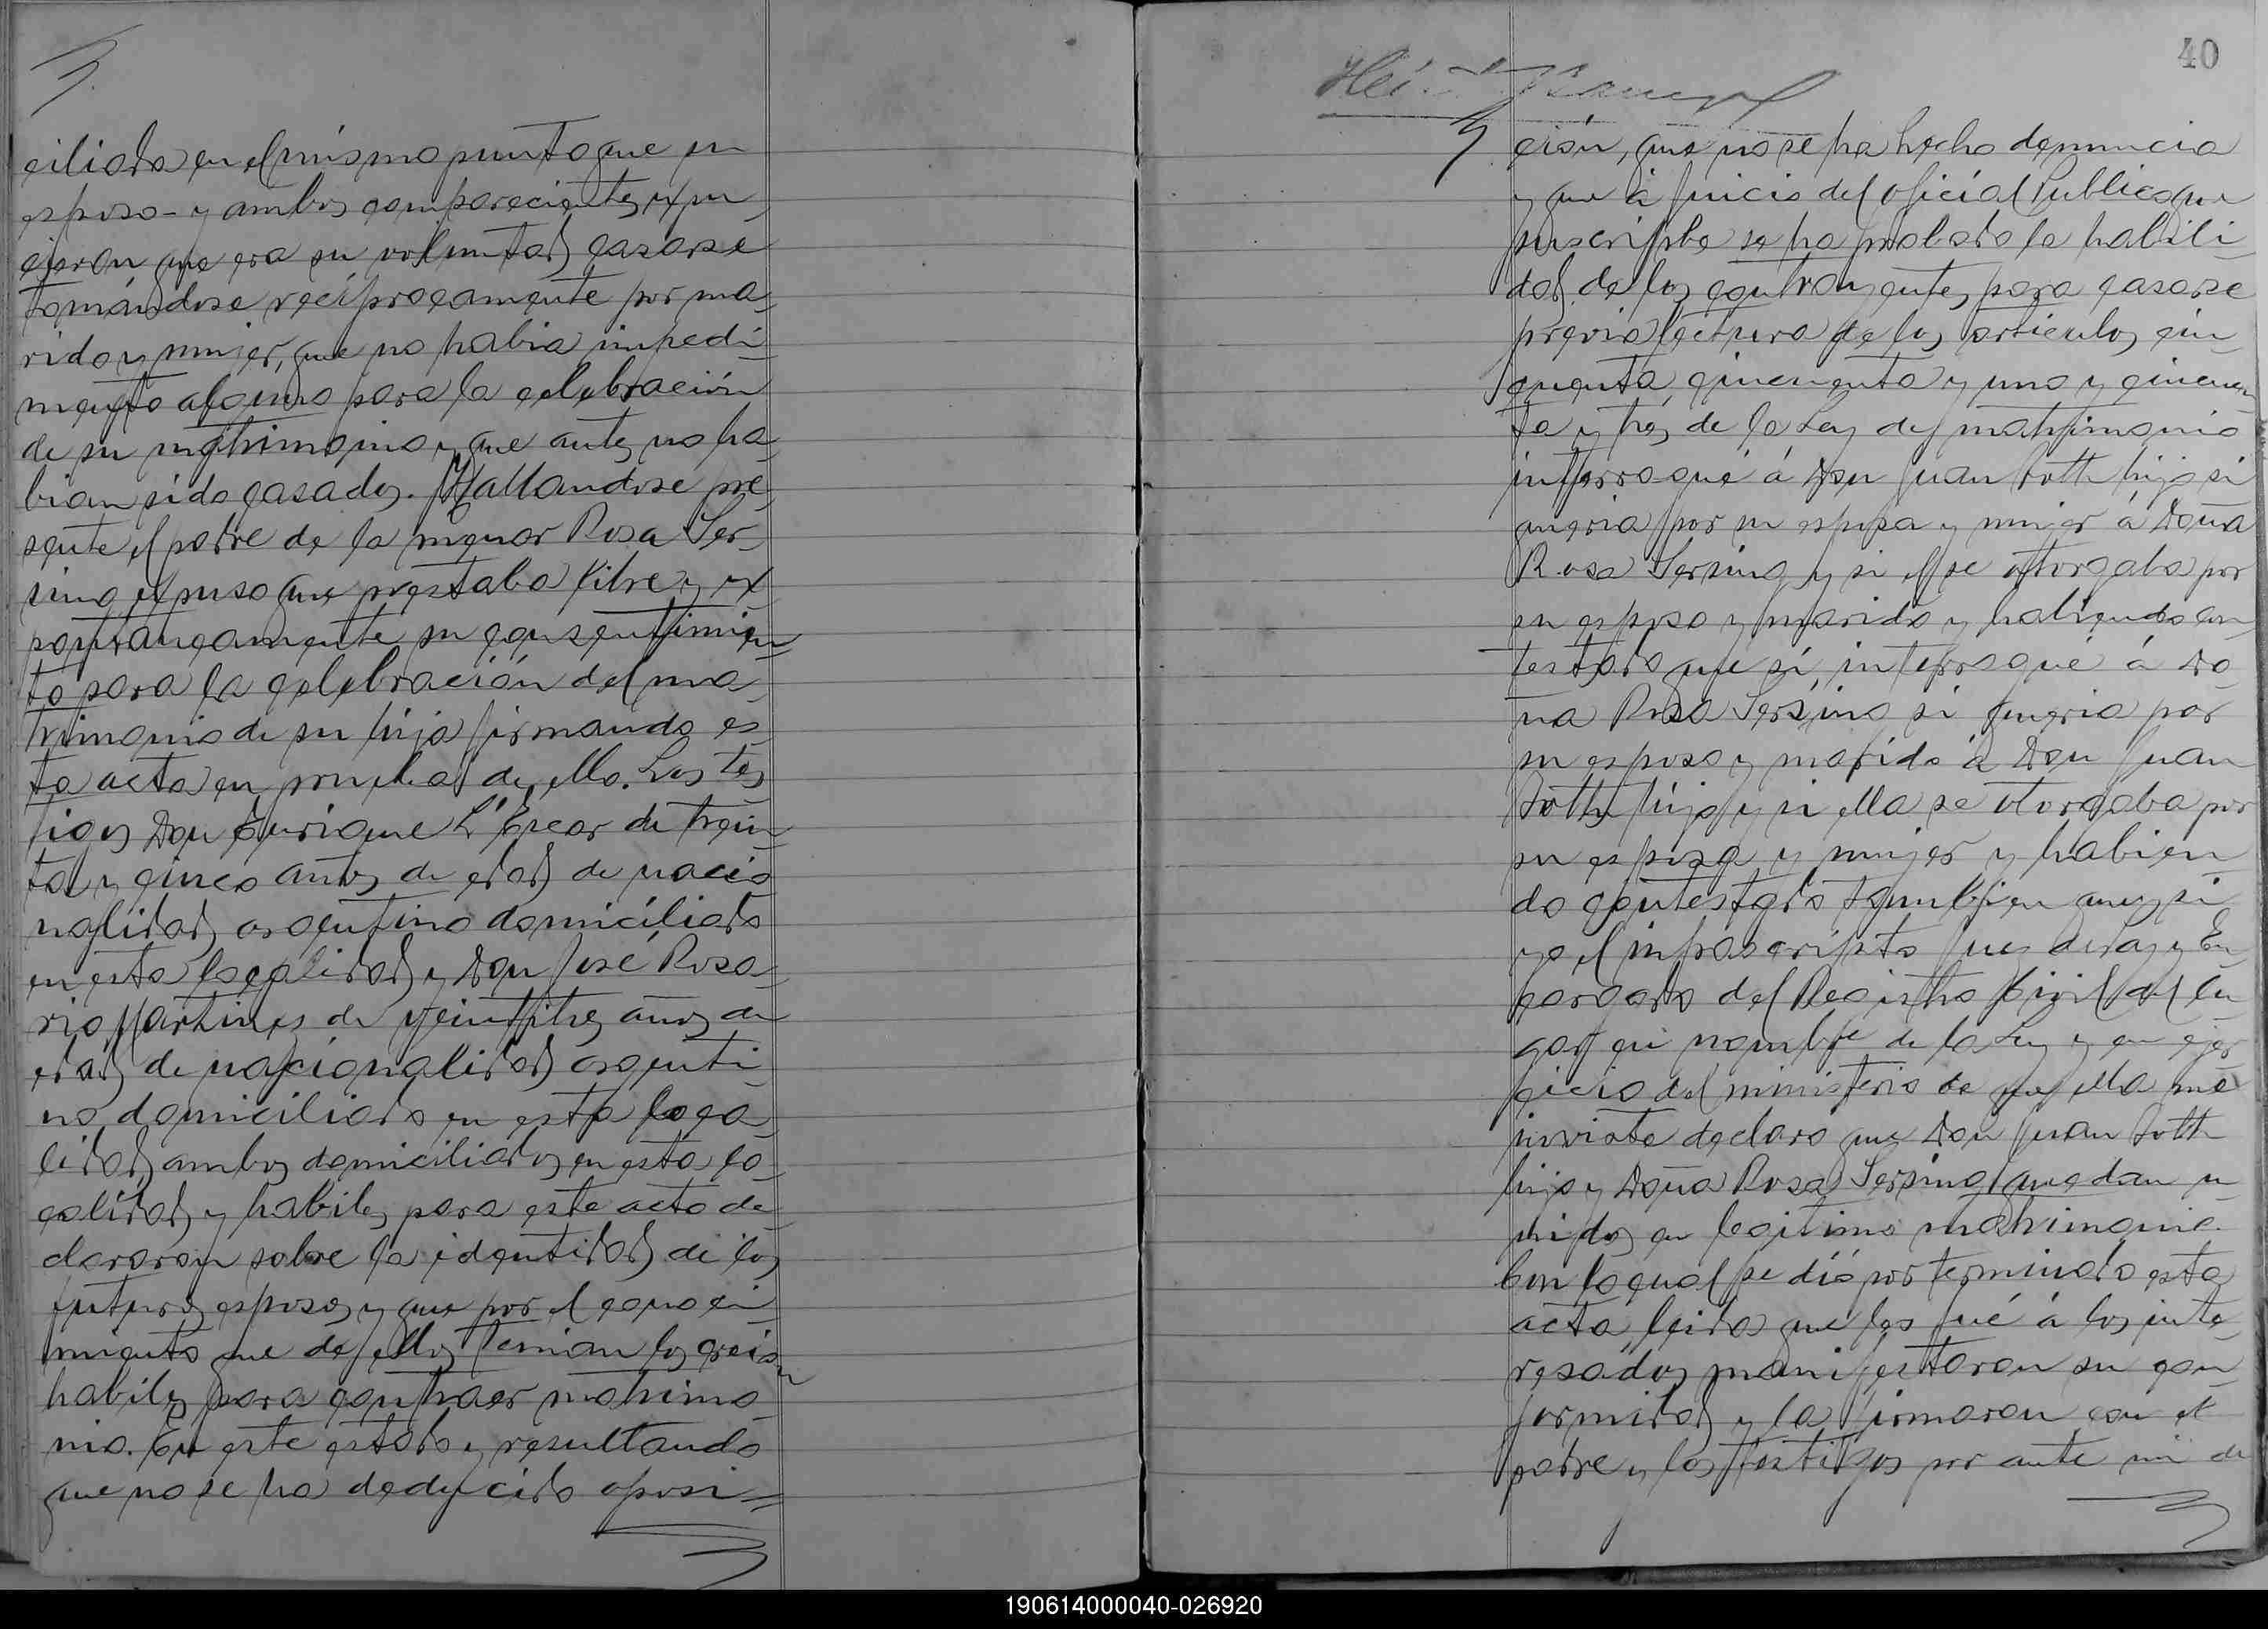 ciliada en el mismo punto que su
esposo - y ambos comparecientes expu
sieron que era su voluntad casarse
tomándose recíprocamente por ma
rido y mujer, que no habia impedi
mento alguno para la celebración
de su matrimonio y que antes no ha
bian sido casados. Hallandose pre
sente el padre de la menor Rosa Ser
sing expuso que prestaba libre y ex
pontaneamente su consentimien
to para la celebración del ma
trimonio de su hija firmando es
ta acta en prueba de ello. Los tes
tigos Don Enrique L'Epear de trein
ta y cinco años de edad de nacio
nalidad argentino domiciliado
en esta localidad y Don José Rosa
rio Martines de veintitres años de
edad de nacionalidad argenti
no domiciliado en esta loca
lidad, ambos domiciliados en esta lo
calidad y habiles para este acto de
clararon sobre la identidad de los
futuros esposos y que por el conoci
miento que de ellos tenian los creian
habiles para contraer matrimo
nio. En este estado y resultando
que no se ha deducido oposi=
40
ción, que no se ha hecho denuncia
y que á juicio del oficial Publico que
suscribe se ha probado la habili
dad de los contrayentes para casarse
previa lectura de los articulos cin
cuenta, cincuenta y uno y cincuen
ta y tres de la Ley de matrimonio
interrogué á Don Juan Roth hijo si
queria por su esposa y mujer á Doña
Rosa Sersing y si el se otorgaba por
su esposo y marido y habiendo con
testado que sí, interrogué á Do
ña Rosa Sersing si queria por
su esposo y marido á Don Juan
Roth hijo y si ella se otorgaba por
su esposa y mujer y habien
do contestado tambien que si
yo el infrascripto Juez de Paz y En
cargado del Registro Civil del lu
gar en nombre de la Ley y en ejer
cicio del ministerio de que ella me
inviste declaro que Don Juan Roth
hijo y Doña Rosa Sersing quedan u
nidos en legitimo matrimonio.
Con lo cual se dió por terminada esta
acta leida que les fué á los inte
resados manifestaron su con
formidad y la firmaron con el
padre y los testigos por ante mi de
190614000040-026920